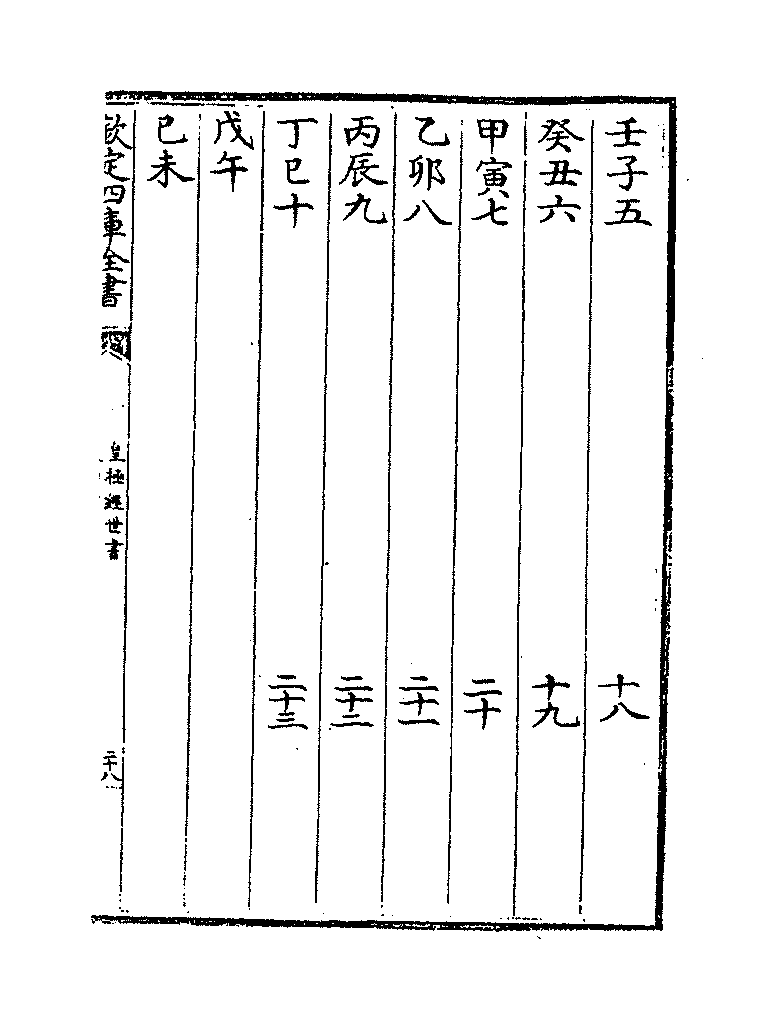 壬子五 十八
癸丑六 十九
甲寅七 二十
乙卯八 二十一
丙辰九 二十二
丁巳十 二十三
戊午
己未
欽定四庫全書 皇極經世書 二十八